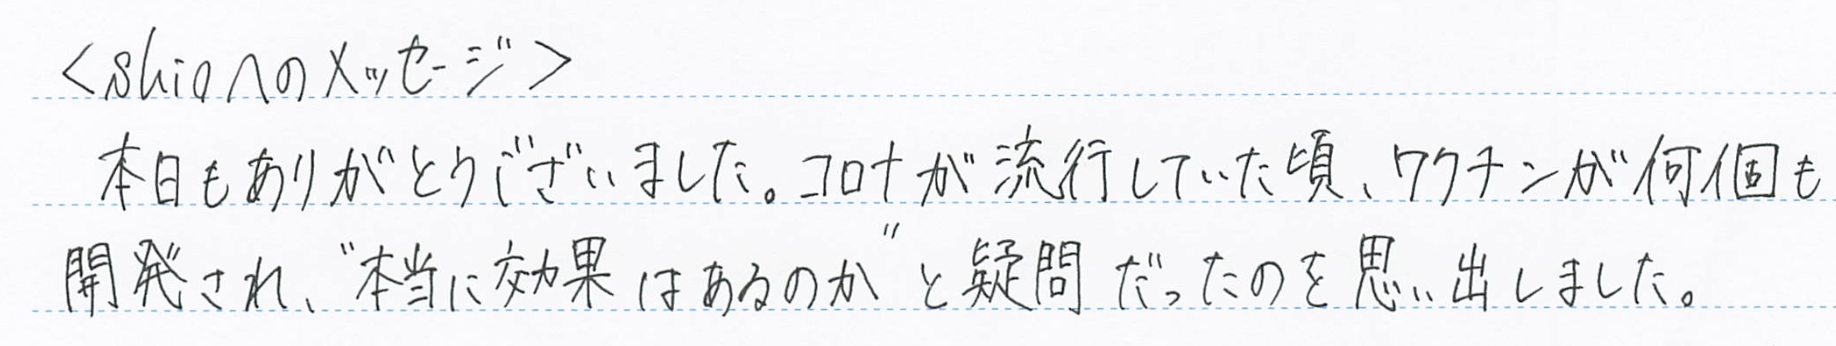 <shioへのメッセージ>
本日もありがとうございました。コロナが流行していた頃、ワクチンが何個も
開発され、"本当に効果はあるのか"と疑問だったのを思い出しました。